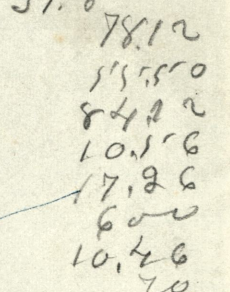 78.12
55.50
84.12
10.56
17.26
600
10.46
70